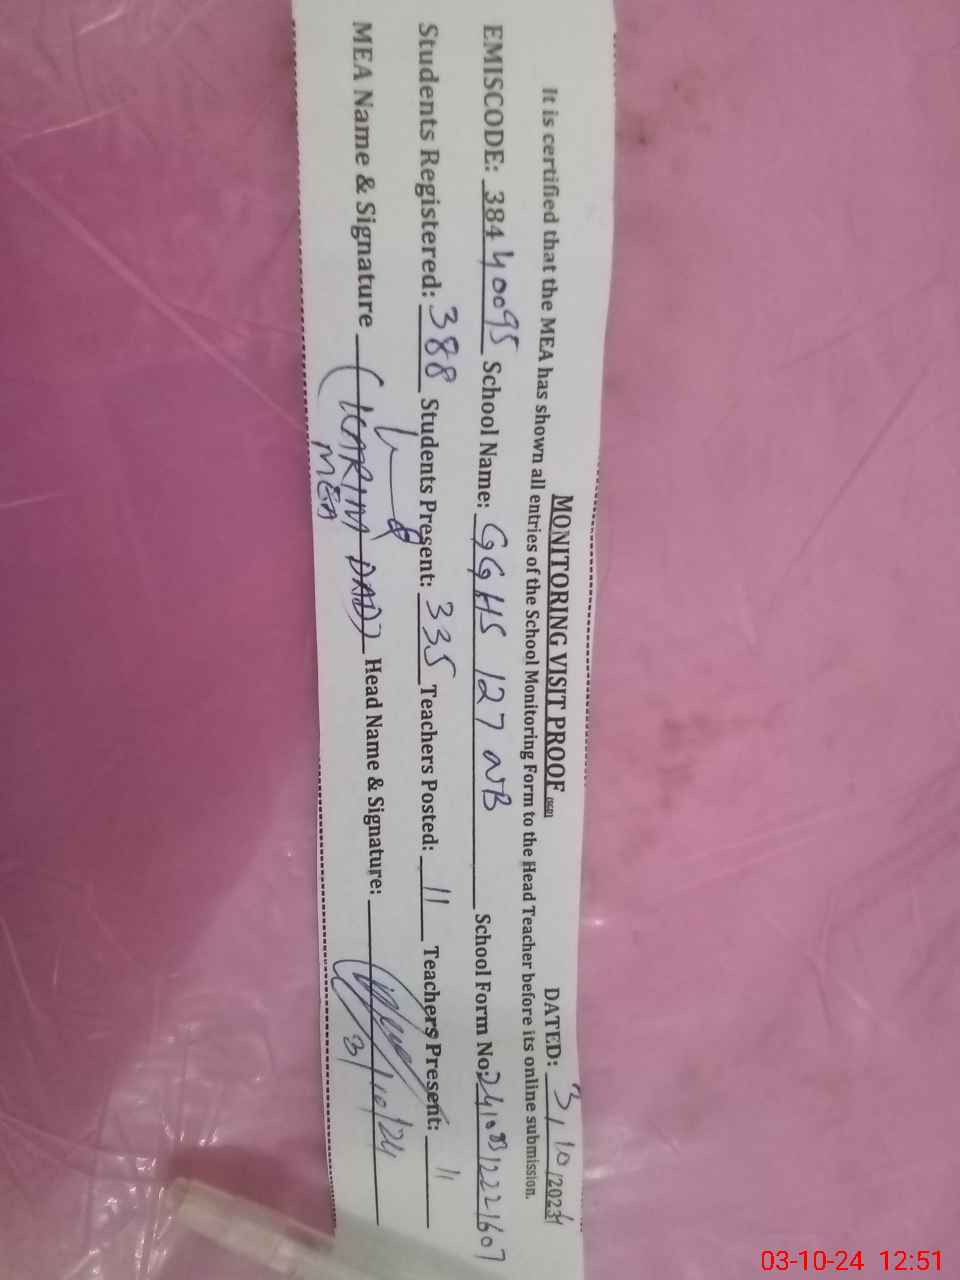 MONITORING VISIT PROOF DATED: 3/10/2024
It is certified that the MEA has shown all entries of the School Monitoring Form to the Head Teacher before its online submission.
EMISCODE: 38440095 School Name: GGHS 127 NB School Form No: 24100312221607
Students Registered: 388 Students Present: 335 Teachers Posted: 11 Teachers Present: 11
MEA Name & Signature (KARIM DAD) Head Name & Signature:
MEA 3/10/24
03-10-24 12:51